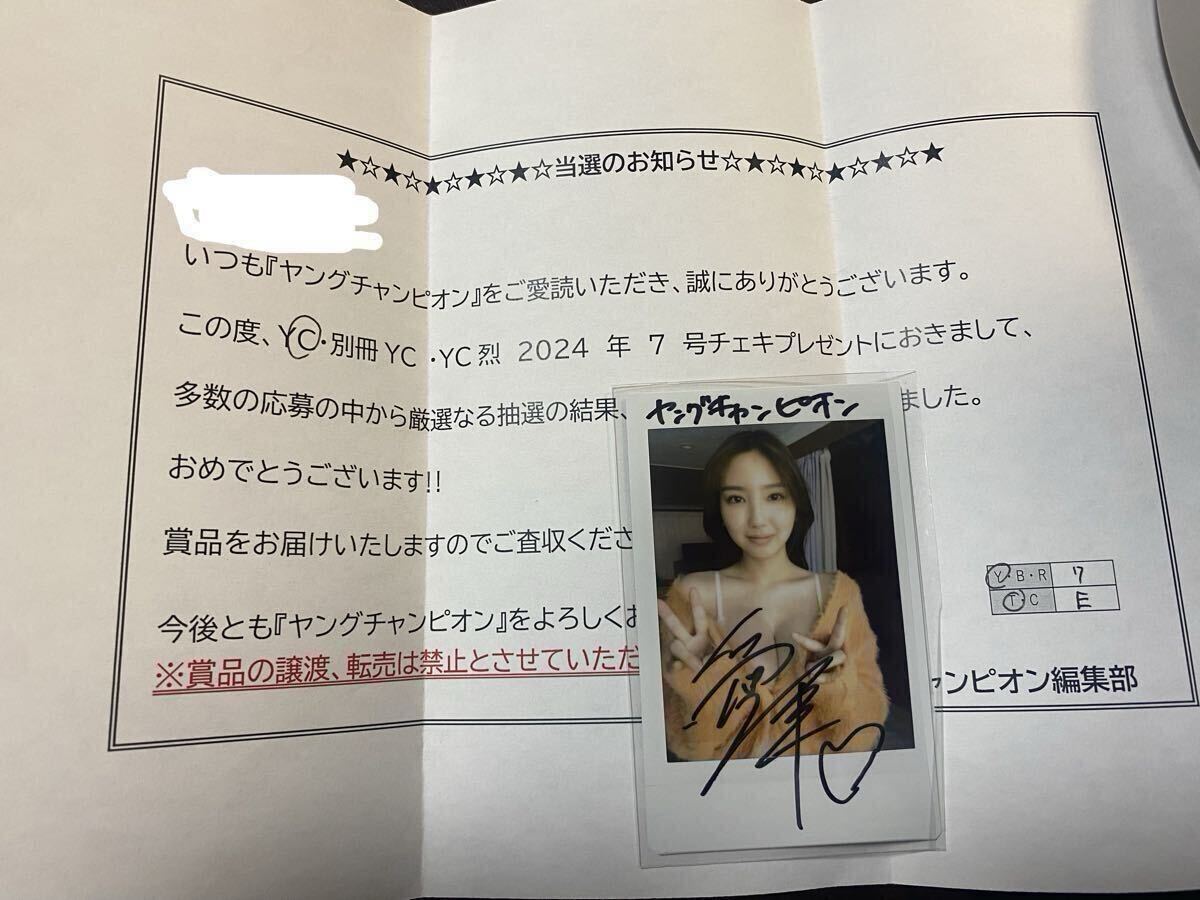 ★☆★☆★☆★☆★☆当選のお知らせ☆★☆★☆★☆★☆★
いつも『ヤングチャンピオン』をご愛読いただき、誠にありがとうございます。
この度、YC・別冊YC・YC烈 2024 年 7 号チェキプレゼントにおきまして、
多数の応募の中から厳選なる抽選の結果、 ました。
おめでとうございます!!
賞品をお届けいたしますのでご査収くださ
今後とも『ヤングチャンピオン』をよろしくお
※賞品の譲渡、転売は禁止とさせていただ
ンピオン編集部
Y・B・R 7
T・C E
ヤングチャンピオン